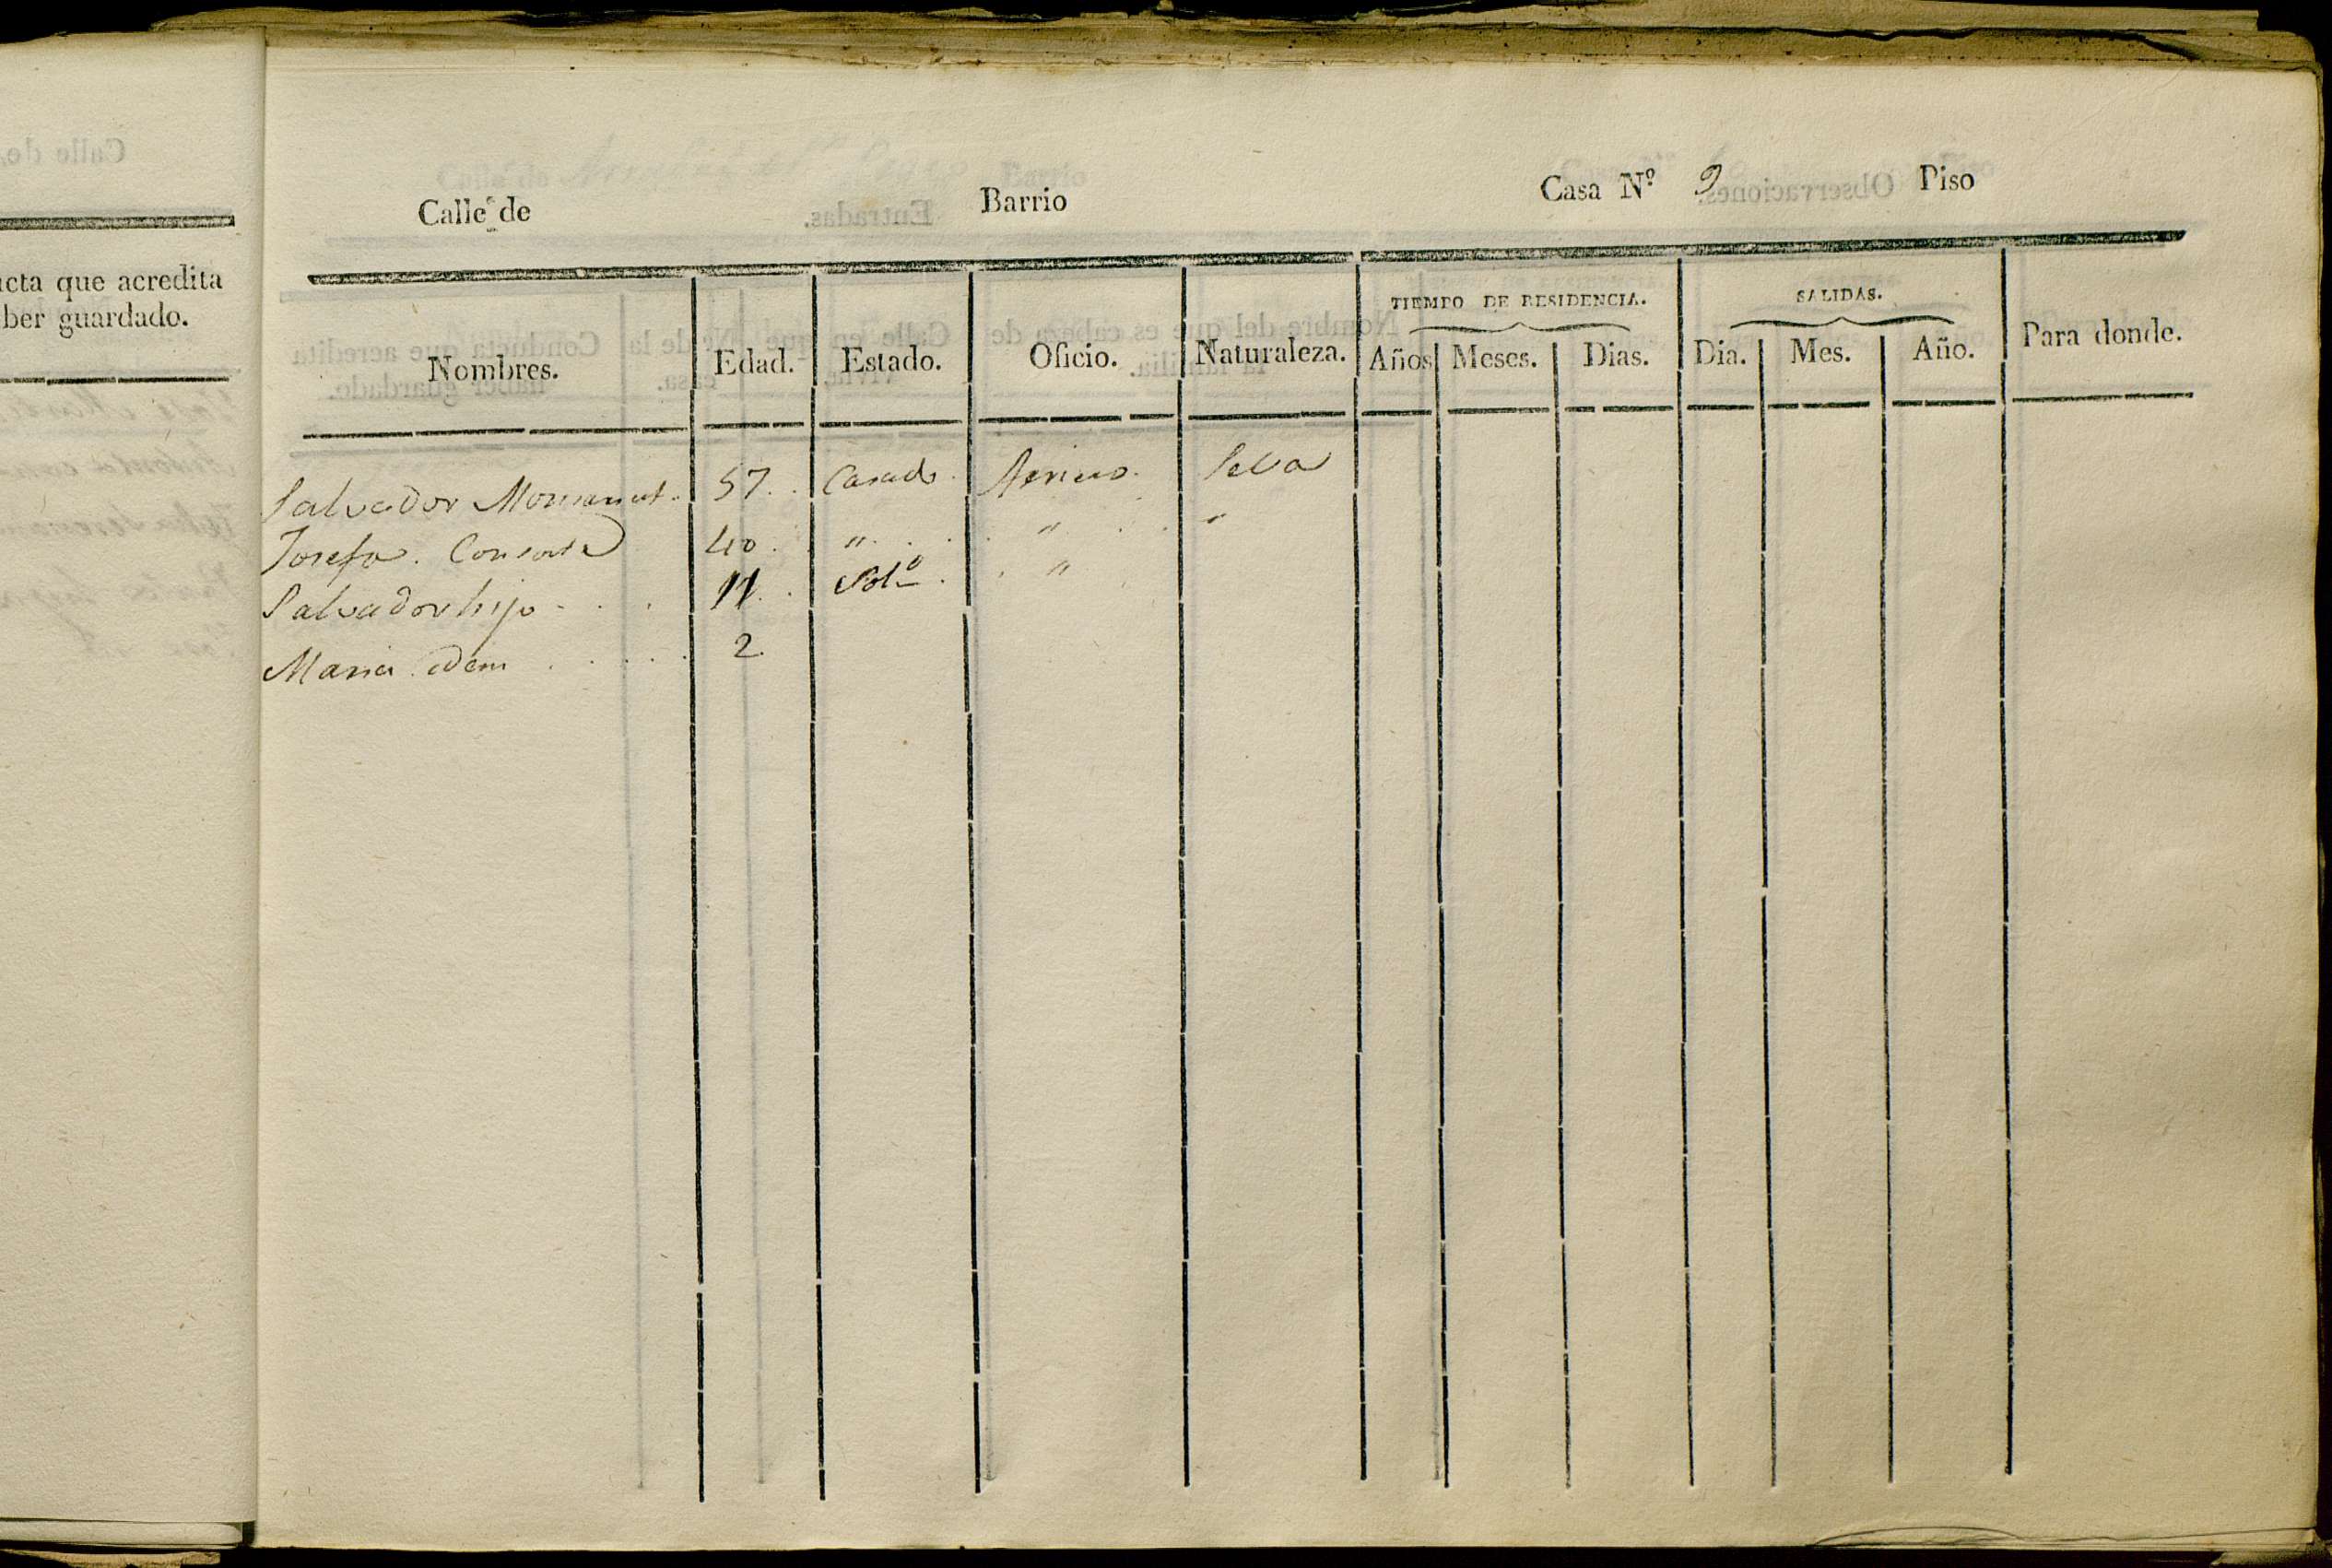 Calle de Barrio Casa Nº 9 Piso
ucta que acredita
ber guardado.
TIEMPO DE RESIDENCIA. SALIDAS.
Nombres. Edad. Estado. Oficio. Naturaleza. Años Meses. Dias. Dia. Mes. Año. Para donde.
Salvador 57. Casado. Selva
Josefa. Consorte 40. " " "
Salvador hijo 11. Solº. "
Maria idem 2